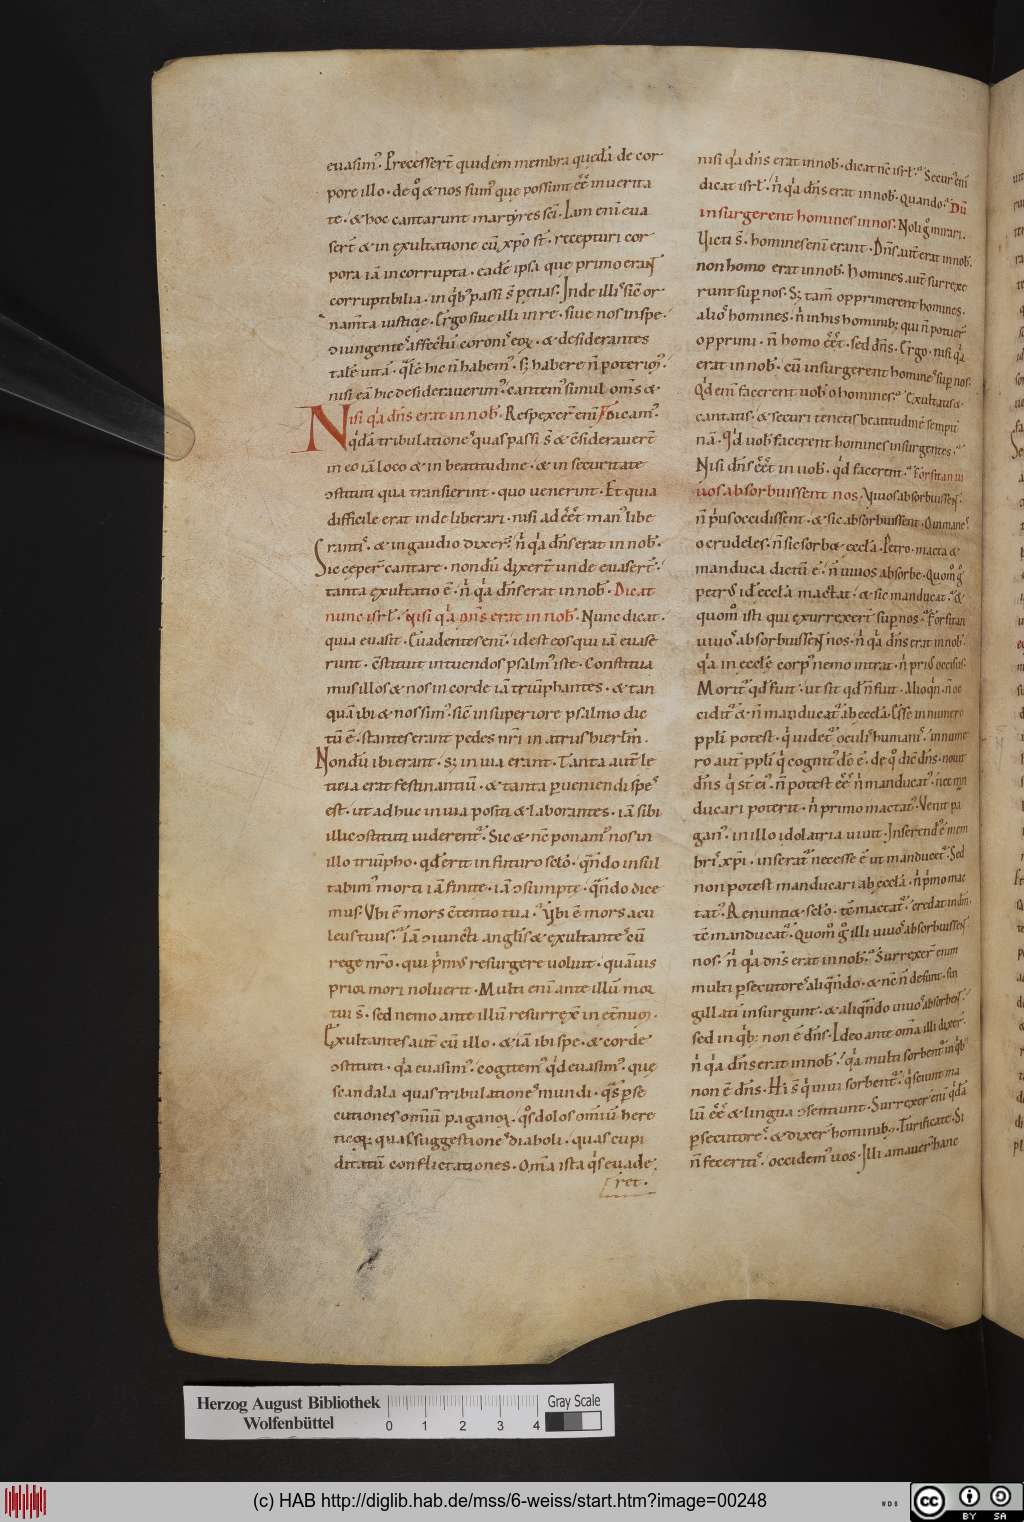 euasim᷒. Precesser̄t quidem membra quedā de cor
pore illo. de q̊ & nos sum᷒ que possunt eēt in uerita
te. & hoc cantarunt martyres sci. Iam eni eua
sert & in exultatione cū xp̄o st̄. recepturi cor
pora iā incorrupta. eadē ipsa que primo erant
corruptibilia. in qb᷒ passi s̄ penas. Inde illis sic or
namta iusticie. Ergo siue illi in re. siue nos in spe.
ɔiungentes affectū coronis eoꝝ. & desiderantes
talē uitā. qlē hic n̄ habem᷒. sꝫ habere n̄ poterim᷒.
nisi eā hic desiderauerim᷒. cantem᷒ simul om̄s &
Nisi q̇a dn̄s erat in nob̄. Respexer̄ eni dicam᷒.
q̇dā tribulationes quas passi s̄ & c̄siderauer̄t
in eo iā loco & in beatitudine. & in securitate
ɔstituti qua transierint. quo uenerint. Et quia
difficile erat inde liberari. nisi adeēt man᷒ libe
rantis. & in gaudio dixer̄. n̄ q̇a dn̄s erat in nob̄.
Sic ceper̄ cantare. nondū dixer̄t unde euaser̄t.
tanta exultatio ē. n̄ q̇a dn̄s erat in nob̄. Dicat
nunc isrł. Nisi q̇a dn̄s erat in nob̄. Nunc dicat.
quia euasit. Cuadentes eni. id est eos qui iā euase
runt. c̄stituit intuendos psalm᷒ iste. Constitua
mus illos & nos in corde iā triūphantes. & tan
quā ibi & nos sim᷒. sic in superiore psalmo dic
tū ē. stantes erant pedes nr̄i in atriis hierłm.
Nondū ibi erant. sꝫ in uia erant. Tanta aut̄ le
ticia erat festinantiū. & tanta pueniendi spes
est. ut adhuc in uia positi & laborantes. iā sibi
illic ɔstituti uiderent᷒. Sic & nc̄ ponam᷒ nos in
illo triūpho. qd̄ erit in futuro sclo. qn̄do insul
tabim᷒ morti iā finite. iā ɔsumpte. qn̄do dice
mus. Vbi ē mors c̄tentio tua. Vbi ē mors acu
leus tuus. Iā ɔiuncti anglis & exultantes cū
rege nr̄o. qui p̄mus resurgere uoluit. quāuis
prior mori noluerit. Multi eni ante illū mor
tui s̄. sed nemo ante illū resurrex̄ in et̄num.
Exultantes aut̄ cū illo. & iā ibi spe. & corde
ɔstituti. q̇a euasim᷒. cogitem᷒ q̇d euasim᷒. que
scandala quas tribulationes mundi. qs̄ pse
cutiones omiū paganoꝝ. qs̊ dolos omiū here
ticoꝝ. quas suggestiones diaboli. quas cupi
ditatū conflictationes. Oma ista qs̄ euade
ret.
nisi q̇a dn̄s erat in nob̄. dicat nc̄ isrł. Securi eni
dicat isrł. n̄ q̇a dn̄s erat in nob̄. quando. Dū
insurgerent homines in nos. Noli g̊ mirari.
Uicti s̄. homines eni erant. Dn̄s aut̄ erat in nob̄.
non homo erat in nob̄. homines aut̄ surrexe
runt sup nos. Sꝫ tam̄ opprimerent homines.
alios homines. n̄ in his hominibꝫ qui n̄ potuer̄
opprimi. n̄ homo eēt. sed dn̄s. Ergo. nisi q̇a
erat in nob̄. cū insurgerent homines sup nos.
Q̇d eni facerent uob̄ o homines. Exultatis &
cantatis. & securi tenetis beatitudinē sempit̄
nā. q̇d uob̄ facerent homines insurgentes.
Nisi dn̄s eēt in uob̄. q̇d facerent. Forsitan ui
uos absorbuissent nos. Viuos absorbuissent.
n̄ p̄us occidissent. & sic absorbuissent. O inmanes.
o crudeles. n̄ sic sorb& eccłā. Petro. macta &
manduca dictū ē. n̄ uiuos absorbe. Quom̊ g̊
petrus id eccła mactat. & sic manducat. &
quom̊ isti qui exurrexer̄t sup nos. Forsitan
uiuos absorbuissent nos. n̄ q̇a dn̄s erat in nob̄.
q̇a in eccłe corp᷒ nemo intrat. n̄ pri᷒ occisus.
Morit᷒ qd̄ fuit. ut sit qd̄ n̄ fuit. Alioqn̄. n̄ oc
cidit᷒ & n̄ manducat᷒ ab eccłā. Esse in numero
ppłi potest. q̇ uidet᷒ oculis humanis. in nume
ro aut̄ ppłi q̇ cognit᷒ dō ē. de q̊ dic̄ dn̄s. nouit
dn̄s q̇ st̄ ei᷒. n̄ potest eē n̄ manducat᷒. nec man
ducari poterit. n̄ primo mactat᷒. Venit pa
gan᷒. in illo idolatria uiuit. Inserend᷒ ē mem
bris xp̄i. inserat᷒ necesse ē ut manducet᷒. Sed
non potest manducari ab eccła. n̄ p̄mo mac
tat᷒. Renunti& sclo. tc̄ mactat᷒. credat in dm̄.
tc̄ manducat᷒. Quom̊ g̊ illi uiuos absorbuisset
nos. n̄ q̇a dn̄s erat in nob̄. Surrexer̄ enim
multi psecutores aliqn̄do. & nc̄ n̄ desunt. sin
gillati insurgunt. & aliqn̄do uiuos absorbet.
sed in qb꞉ non ē dn̄s. Ideo ante om̄a illi dixer̄.
n̄ q̇a dn̄s erat in nob̄. q̇a multi sorbent᷒ in qb᷒
non ē dn̄s. Hi s̄ q̇ uiui sorbent᷒. q̇ sciunt ma
lū eē & lingua ɔsentiunt. Surrexer̄ eni q̇dā
psecutores. & dixer̄ hominibꝫ. Turificate. Si
n̄ feceritis. occidem᷒ uos. Illi amauer̄ hanc
Herzog August Bibliothek
Wolfenbüttel
0 1 2 3 4
Gray Scale
(c) HAB http://diglib.hab.de/mss/6-weiss/start.htm?image=00248
cc BY SA